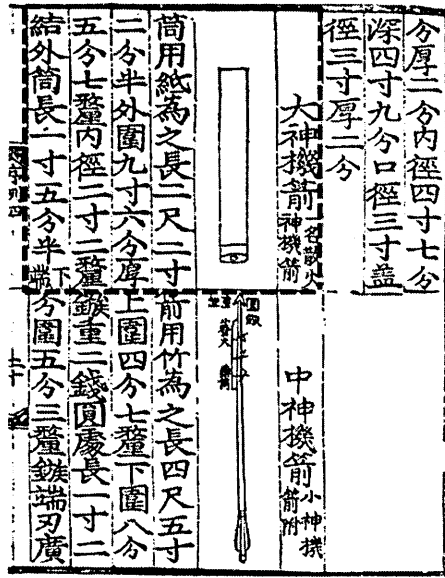 分厚二分內徑四寸七分
深四寸九分口徑三寸蓋
徑三寸厚二分
大神機箭
一名散火
神機箭
筒用紙為之長二尺二寸
二分半外圍九寸六分厚
五分七釐內徑二寸二釐
結外筒長一寸五分半下端
中神機箭
小神機
箭附
圓鏃
箭用竹為之長四尺五寸
上圍四分七釐下圍八分
鏃重二錢圓處長一寸二
分圍五分三釐鏃端刃廣